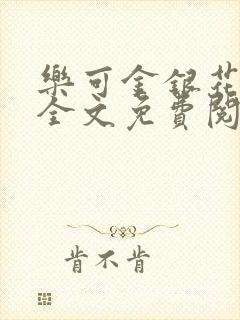 樂可金銀花
全文免費閱
肯不肯